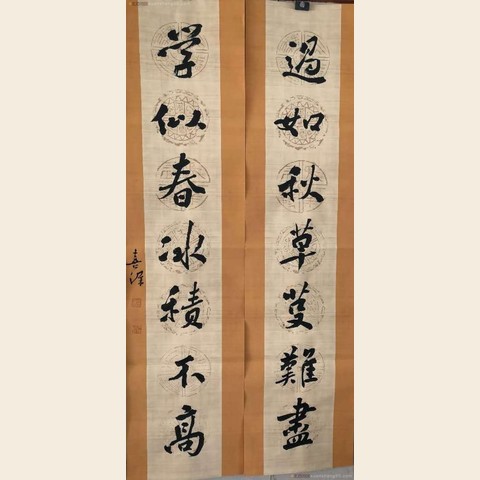 過如秋草芟難盡
学似春冰積不高